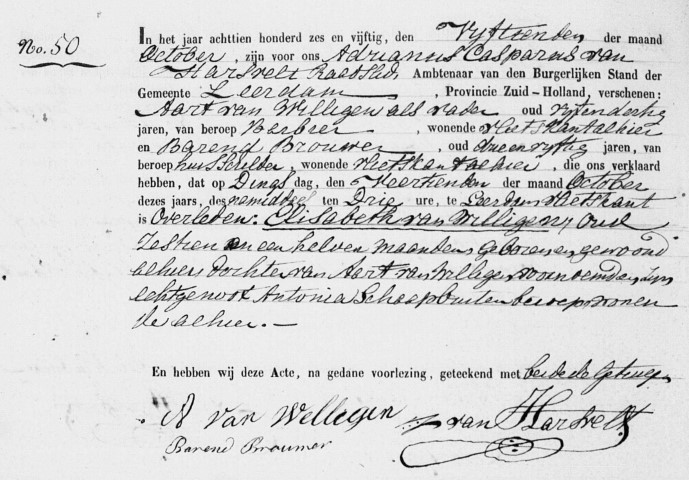 No. 50
In het jaar achttien honderd zes en vijftig, den Vyftienden der maand
October, zijn voor ons Adrianus Casparus van
Harsvelt Raadslid, Ambtenaar van den Burgerlijken Stand der
Gemeente Leerdam, Provincie Zuid-Holland, verschenen:
Aart van Willigen als vader oud vyfendertig
jaren, van beroep Barbier, wonende Vlietskant alhier
en Barend Brouwer, oud drieenvyftig jaren, van
beroep huisschilder, wonende Vlietskant alhier, die ons verklaard
hebben, dat op Dingsdag, den Veertienden der maand October
dezes jaars, des namiddags ten Drie ure, te Leerdam Vlietskant
is Overleden: Elisabeth van Willigen, oud
Zestien en een halven maanden, geboren en gewoond
alhier dochter van Aart van Willigen voornoemd en zyn
echtgenoot Antonia Schaap buiten beroep wonen
de alhier. —
En hebben wij deze Acte, na gedane voorlezing, geteekend met beide de Getuigen
A van Wellegen van Harsvelt
Barend Brouwer